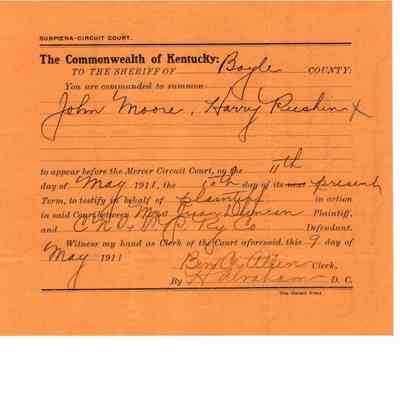 SUBPŒNA-CIRCUIT COURT.
The Commonwealth of Kentucky:
TO THE SHERIFF OF Boyle COUNTY:
You are commanded to summon
John Moore, Harry
to appear before the Mercer Circuit Court, on the 11th
day of May 1911, the 10th day of its next present
Term, to testify in behalf of plaintiff in action
in said Court between Mrs Duncan Plaintiff,
and C.N.O. & T.P. Ry Co Defendant.
Witness my hand as Clerk of the Court aforesaid, this 9 day of
May 1911
Ben C. Allin Clerk,
By H Abraham D. C.